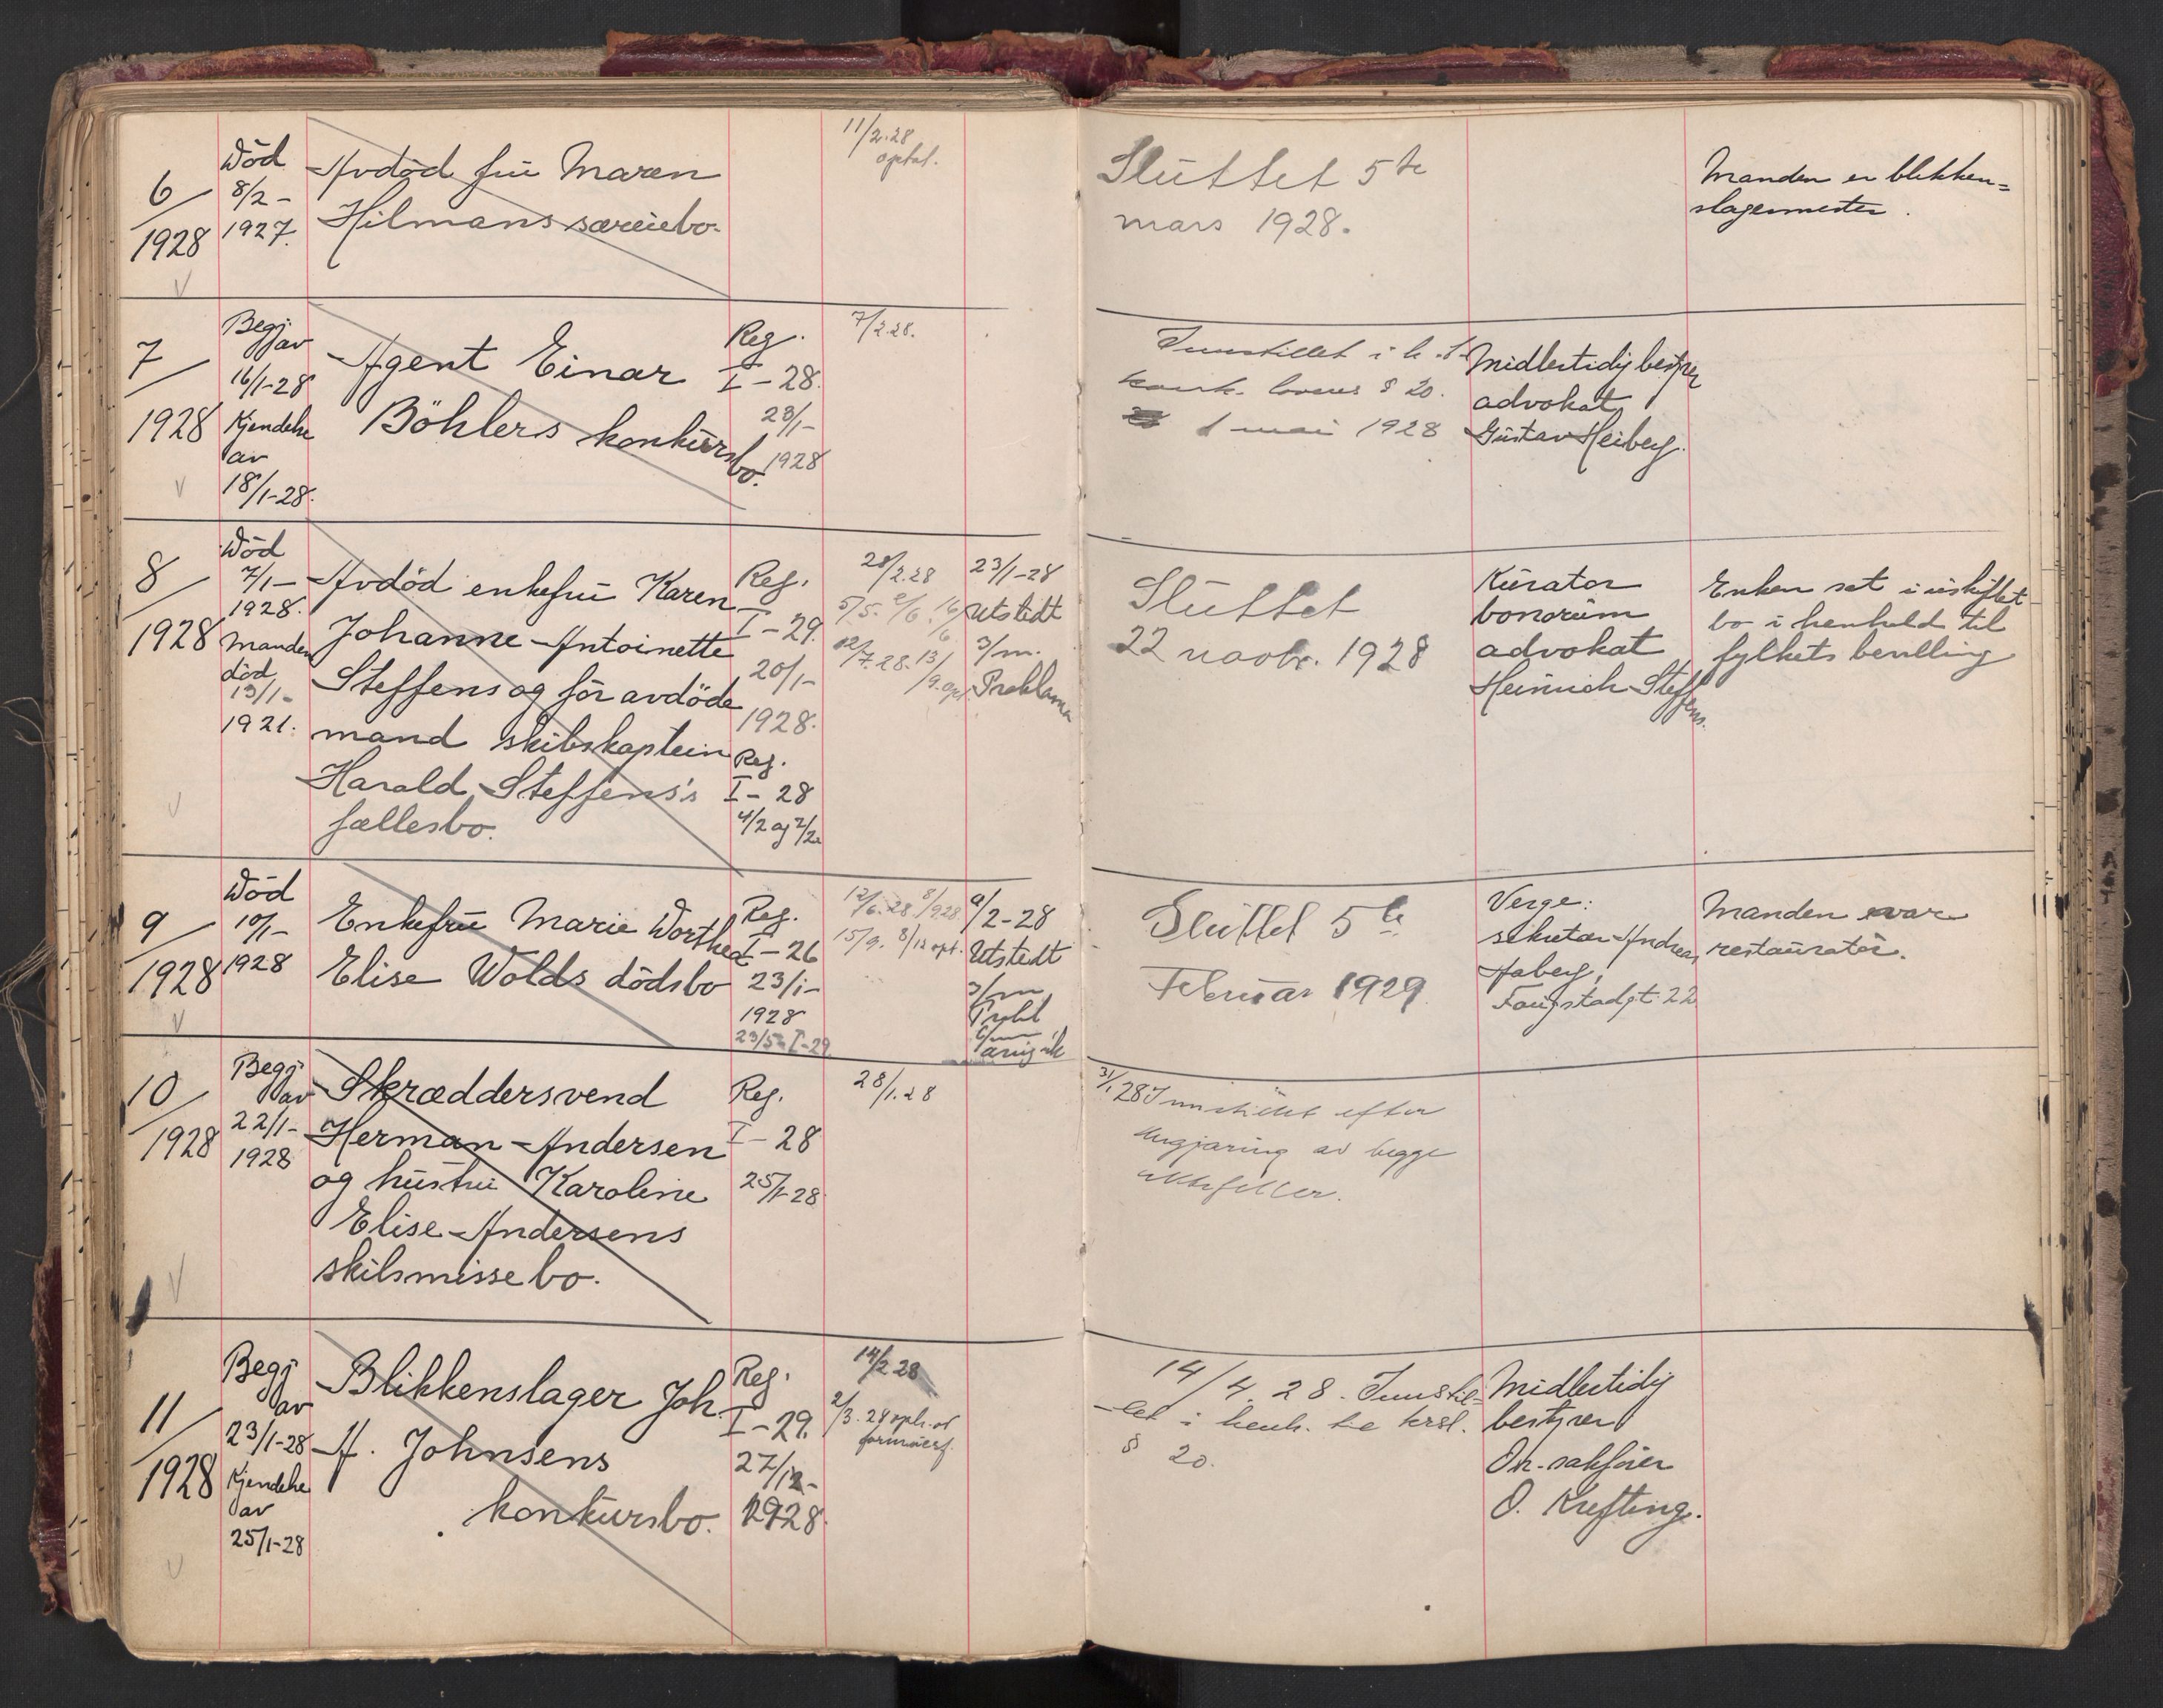 6/1928
Død
8/2-
1927.
Avdød frú Maren
Hilmans særeiebo.
11/2.28
optat.
Slúttet 5te
mars 1928.
Manden er blikken=
slagermester.
7/1928
Begj.
av
16/1-28
Kjendelse
av
18/1-28.
Agent Einar
Böhlers konkúrsbo.
Reg.
I-28.
23/1-
1928
7/2.28.
Innstillet i h. t.
konk. lovens § 20.
1 mai 1928
Midlertidig bestyrer
advokat
Gústav Heiberg.
8/1928
Død
7/1-
1928.
Manden
død
13/1-
1921.
Avdød enkefrú Karen
Johanne Antoinette
Steffens og før avdøde
mand skibskaptein
Harald Steffens's
fællesbo.
Reg.
I-29.
20/1-
1928.
Reg.
I-28
4/2 og
28/2.28
23/1-28
Utstedt
3/m.
Proklama
Slúttet
22 novbr. 1928
Kúrator
bonorúm
advokat
Heinrich Steffens.
Enken sat i úskiftet
bo i henhold til
fylkets bevilling
9/1928
Død
10/1-
1928
Enkefrú Marie Dorthea
Elise Wolds dødsbo
Reg.
I-26
23/1-
1928
23/5- I-29
12/6.28. 8/9 28
15/9. 8/12 opt.
9/2-28
Utstedt
3/m
Prokl
Slúttet 5te
Febrúar 1929
Verge:
sekretær Andreas
Aaberg,
Fougstadgt. 22
Manden var
restaúratør.
10/1928
Begj.
av
22/1-
1928
Skræddersvend
Herman Andersen
og hústrú Karoline
Elise Andersens
skilsmissebo.
Reg.
I-28
25/1-28
28/1.28
31/1.28 Innstillet efter
begjæring av begge
ektefeller.
11/1928
Begj
av
23/1-28
Kjendelse
av
25/1-28
Blikkenslager Joh.
A. Johnsens
konkúrsbo.
Reg.
I-29.
27/12-
1928.
14/2 28
2/3. 28
14/4. 28. Innstil-
let i henh. til krsl.
§ 20.
Midlertidig
bestyrer
O.r.sakfører
O. Krefting.